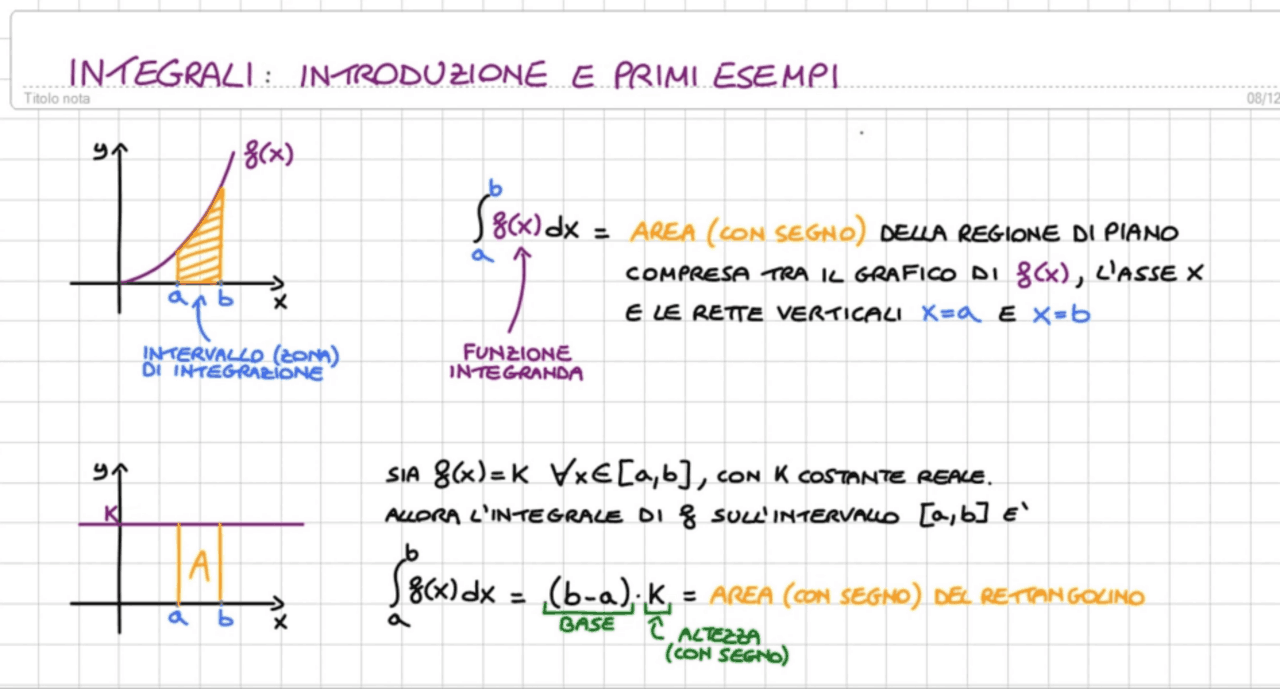 INTEGRALI: INTRODUZIONE E PRIMI ESEMPI
Titolo nota
08/12
y
f(x)
a b x
INTERVALLO (ZONA)
DI INTEGRAZIONE
∫_a^b f(x) dx = AREA (CON SEGNO) DELLA REGIONE DI PIANO
COMPRESA TRA IL GRAFICO DI f(x), L'ASSE X
E LE RETTE VERTICALI X=a E X=b
FUNZIONE
INTEGRANDA
y
K
A
a b x
SIA f(x)=K ∀x∈[a,b], CON K COSTANTE REALE.
ALLORA L'INTEGRALE DI f SULL'INTERVALLO [a,b] E'
∫_a^b f(x) dx = (b-a)·K = AREA (CON SEGNO) DEL RETTANGOLINO
BASE
ALTEZZA
(CON SEGNO)